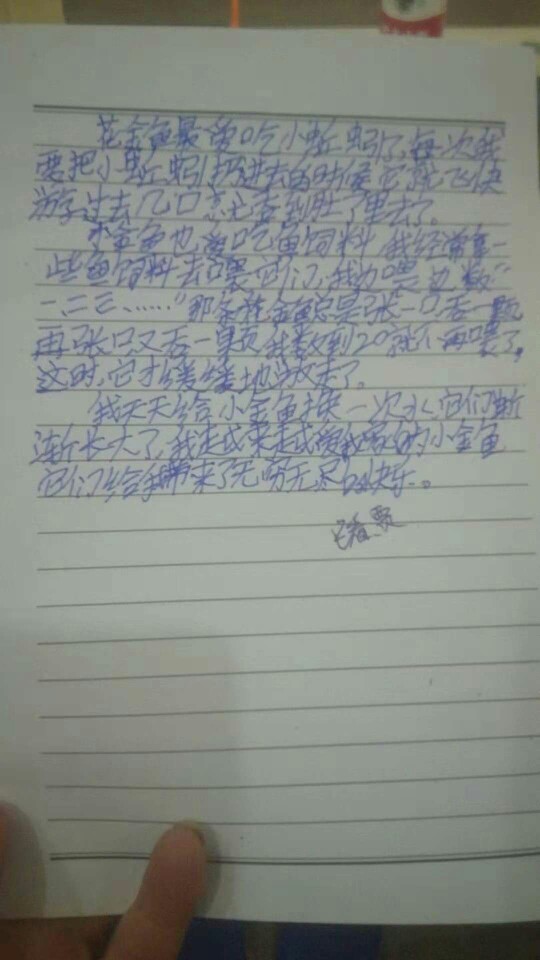 花金鱼最爱吃小蚯蚓了,每次我
要把小蚯蚓扔进去的时候它就飞快
游过去几口就吞到肚子里去了。
小金鱼也爱吃鱼饲料,我经常拿一
些鱼饲料去喂它们,我边喂边数“
一二三……”那条花金鱼总是张一口吞一颗
再张口又吞一颗我数到20就不再喂了,
这时,它才缓缓地游走了。
我天天给小金鱼换一次水,它们渐
渐长大了,我越来越爱我家的小金鱼
它们给我带来了无穷无尽的快乐。